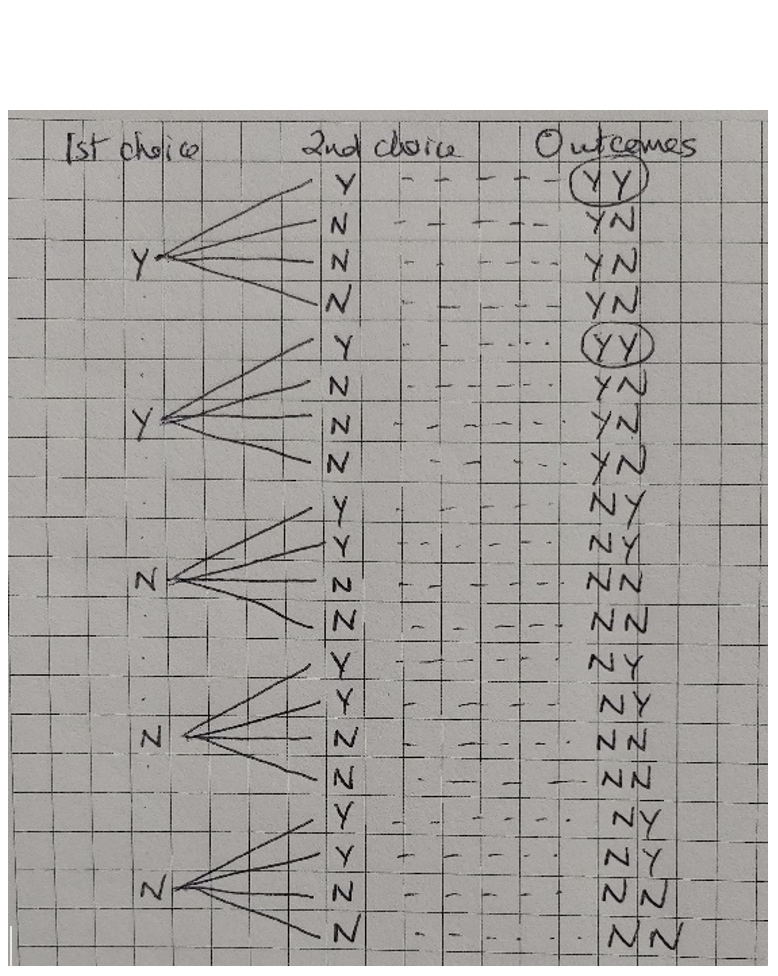 1st choice 2nd choice Outcomes
Y YY
N YN
Y N YN
N YN
Y YY
N YN
Y N YN
N YN
Y NY
Y NY
N N NN
N NN
Y NY
Y NY
N N NN
N NN
Y NY
Y NY
N N NN
N NN